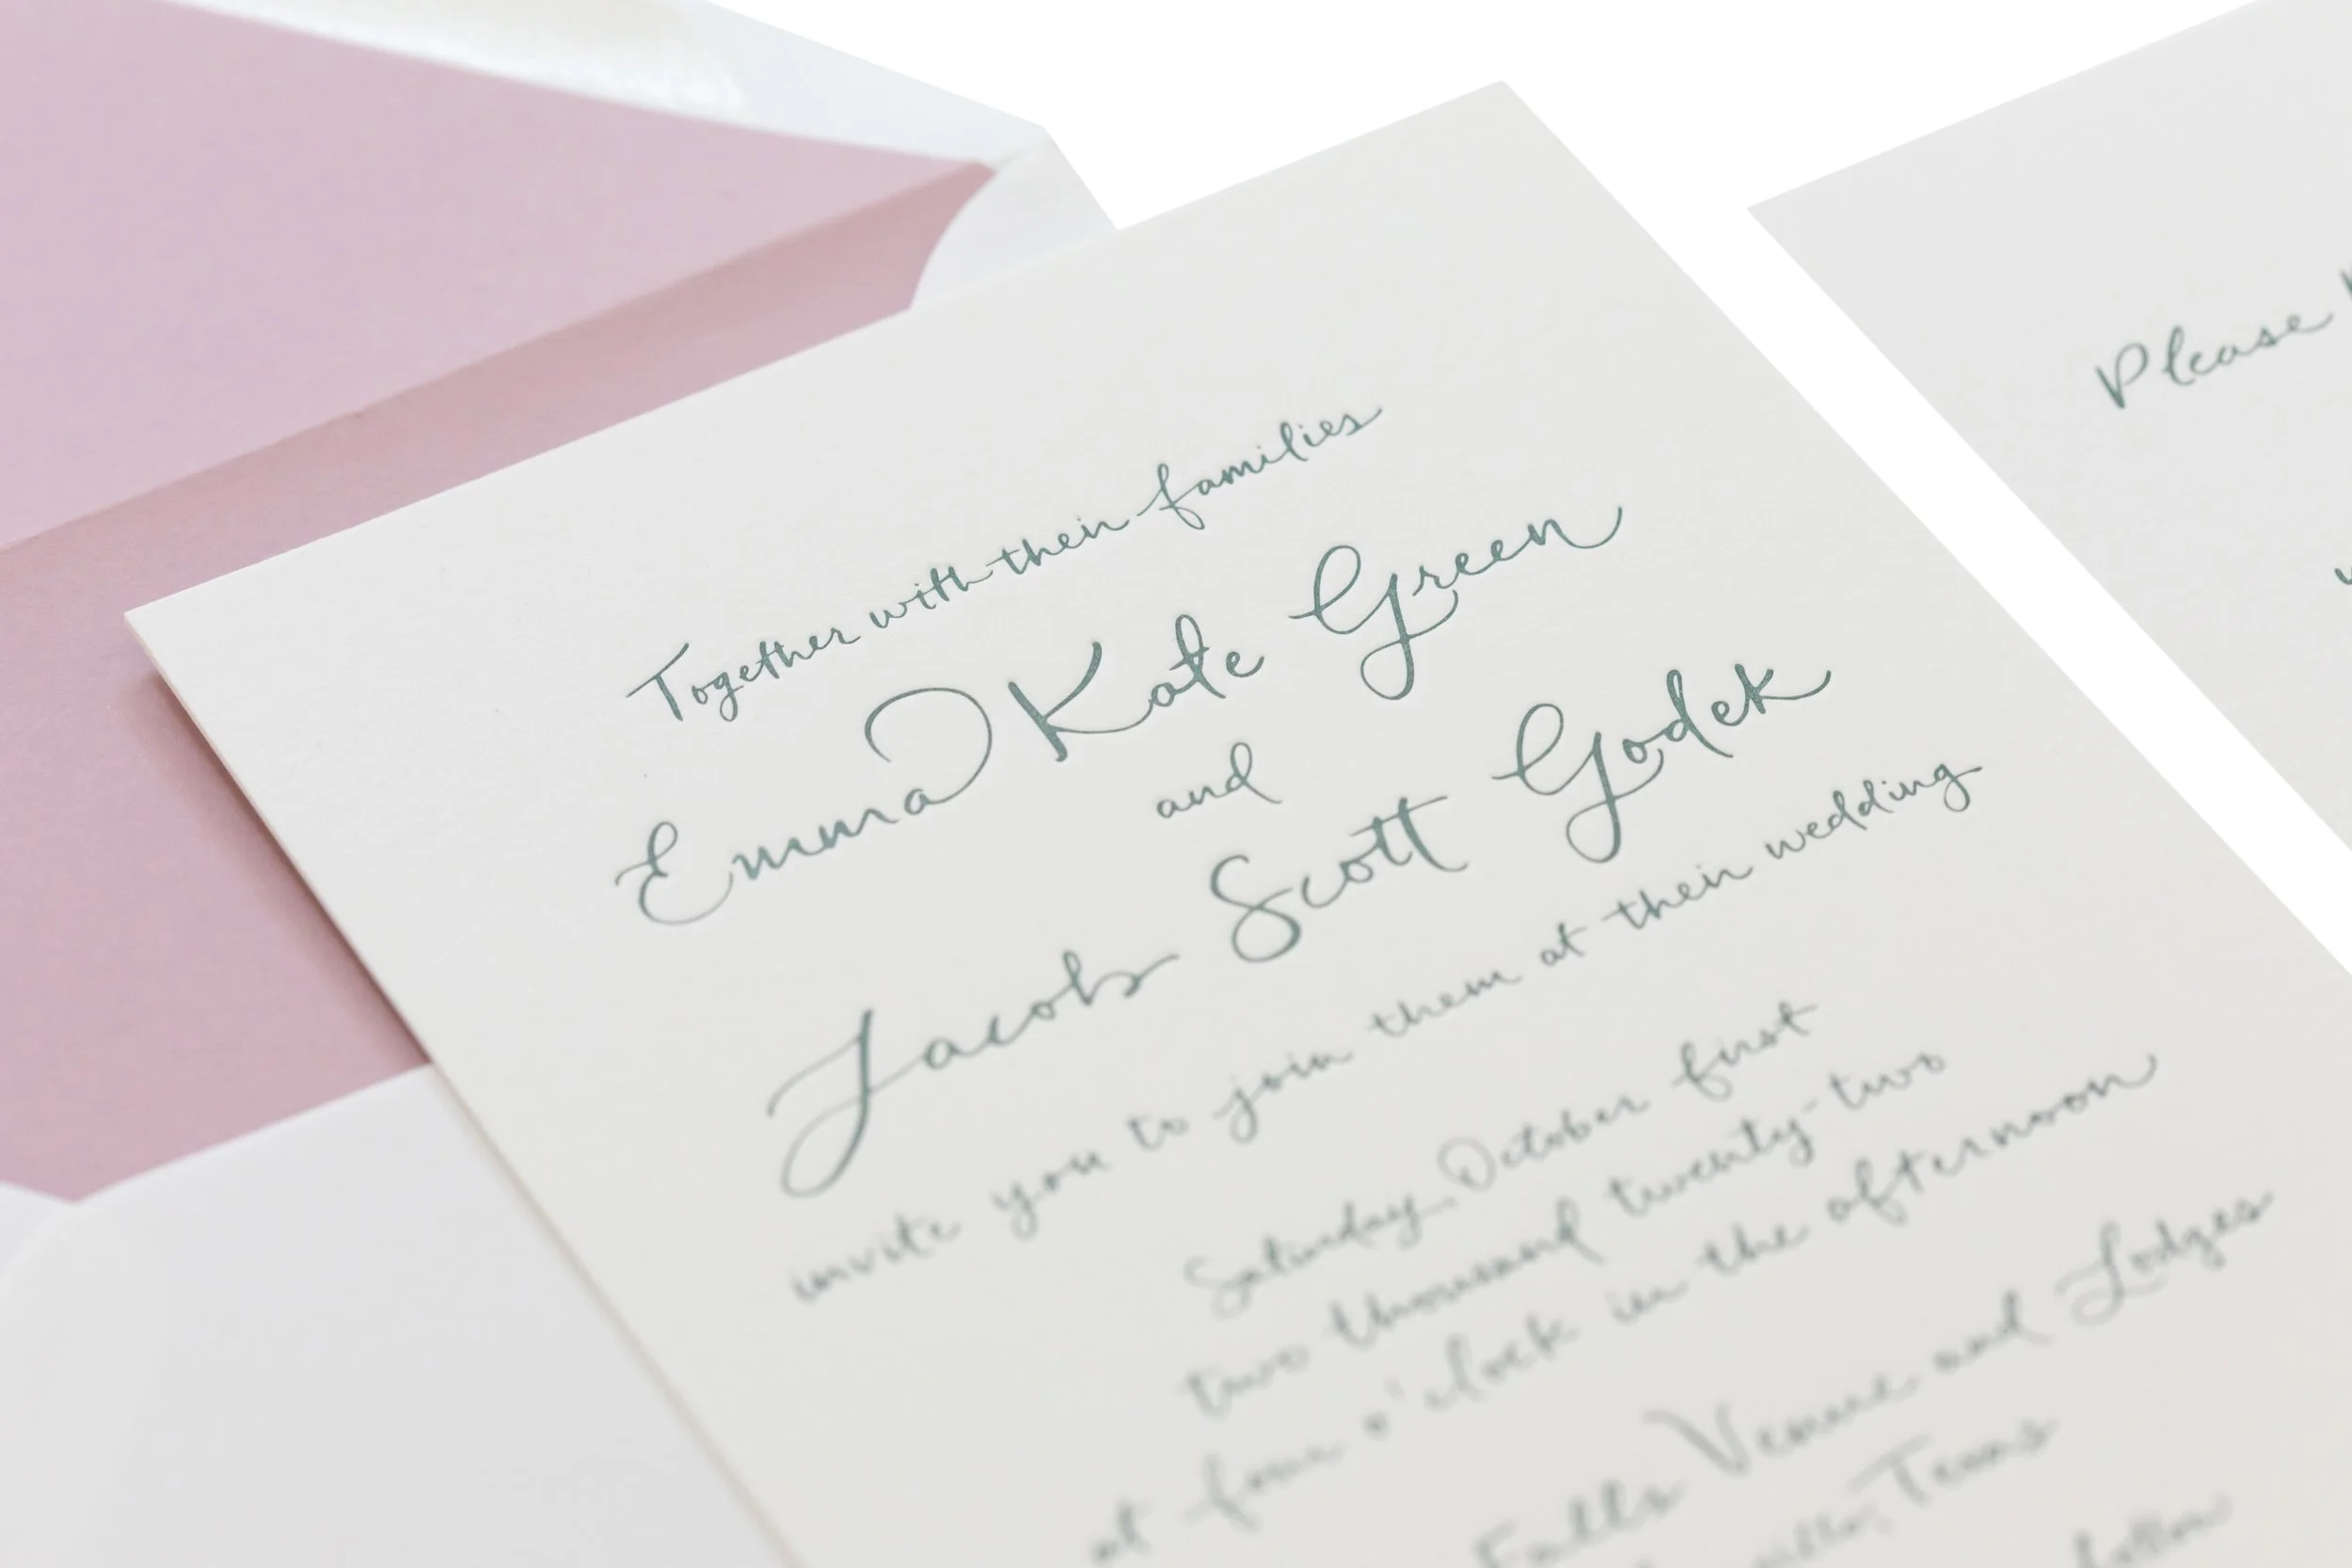 Together with their families
Emma Kate Green
and
Jacob Scott Godek
invite you to join them at their wedding
Saturday, October first
two thousand twenty-two
at four o'clock in the afternoon
Falls Venue and Lodges
Texas
follow
Please